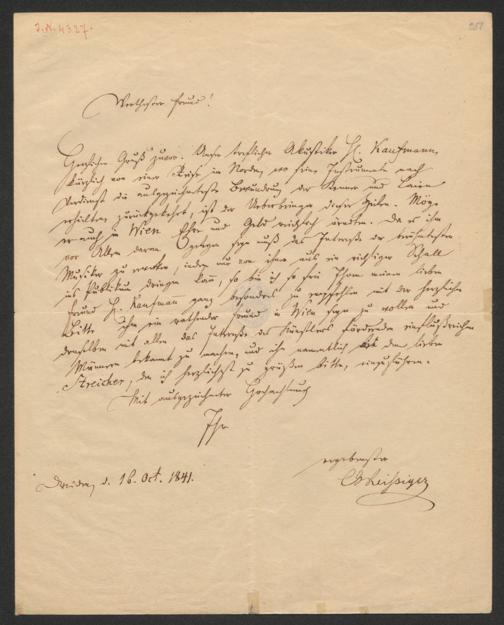 I.N. 4327.
Werthester Freund!
Herzlichen Gruß zuvor. Unser trefflicher Akustiker H. Kaufmann,
kürzlich von einer Reise im Norden, wo seine Instrumente nach
Verdienst die ausgezeichnetste Bewunderung der Kenner und Laien
erhielten zurückgekehrt, ist der Ueberbringer dieser Zeilen. Möge
er auch in Wien Ehre und Geld reichlich ärndten. Da es ihm
vor Allem daran gelegen seyn muß das Interesse der berühmtesten
Musiker zu erwecken, indem nur von ihnen aus ein richtiger Schall
ins Publikum dringen kann, so bin ich so frei Ihnen meinen lieben
Freund H. Kaufmann ganz besonders zu empfehlen mit der herzlichen
Bitte ihm ein rathender Freund in Wien seyn zu wollen und
denselben mit allen das Interesse des Künstlers fördernden einflußreichen
Männern bekannt zu machen, und ihn namentlich bei dem lieben
Streicher, den ich herzlichst zu grüßen bitte, einzuführen.
Mit ausgezeichneter Hochachtung
Ihr
ergebenster
CGReissiger
Dresden, d. 16. Oct. 1841.